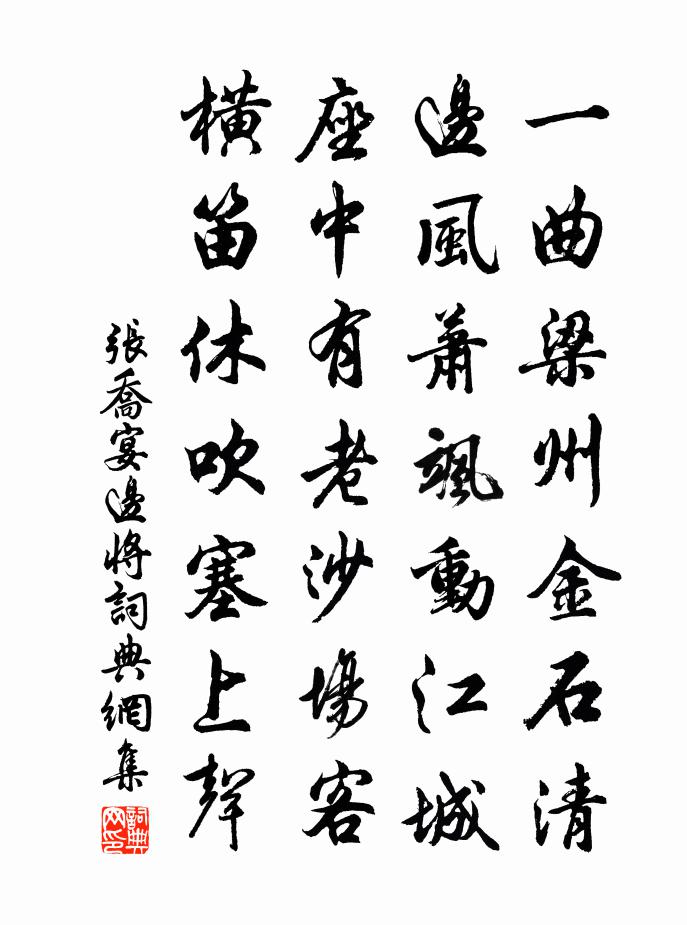 一曲梁州金石清
邊風蕭颯動江城
座中有老沙場客
橫笛休吹塞上聲
張喬宴邊將詞典網集
詞典网印